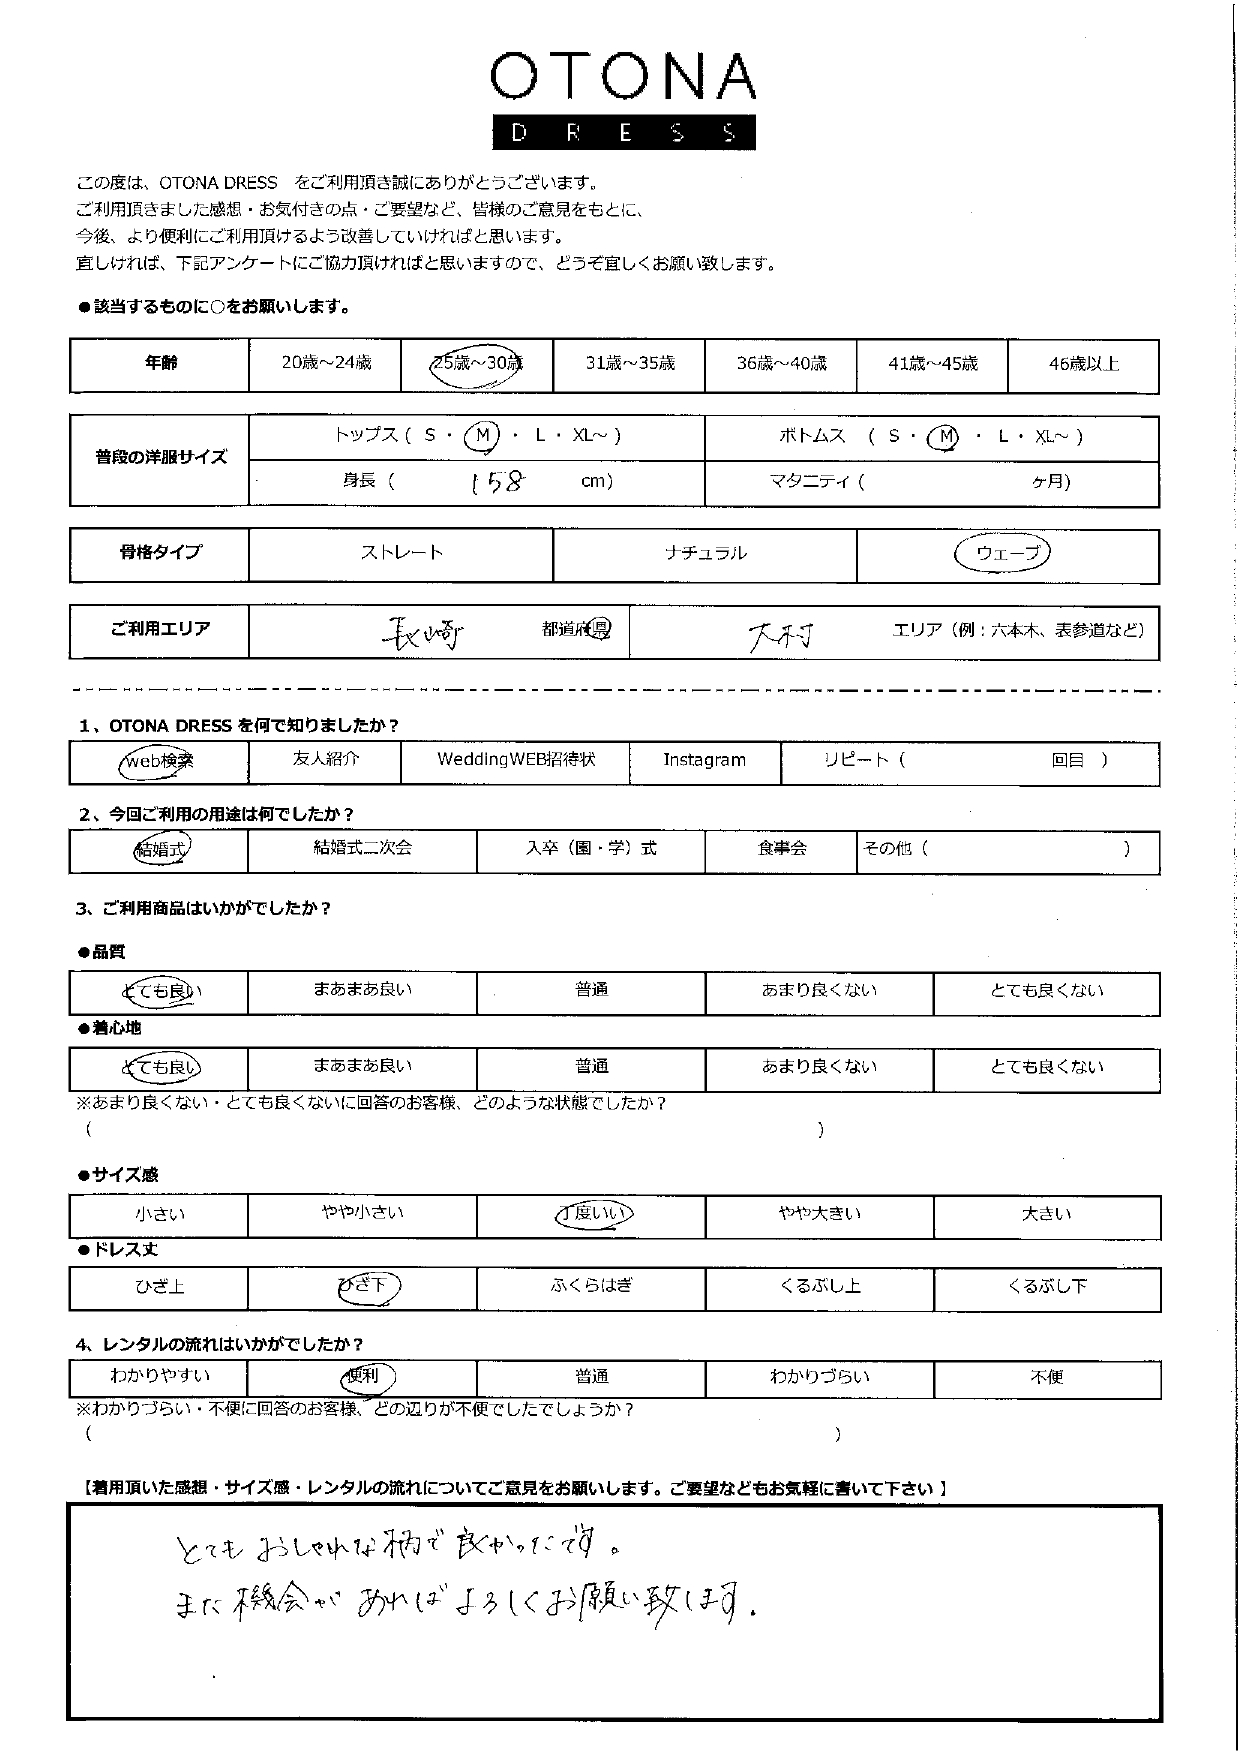 OTONA
DRESS
この度は、OTONA DRESS　をご利用頂き誠にありがとうございます。
ご利用頂きました感想・お気付きの点・ご要望など、皆様のご意見をもとに、
今後、より便利にご利用頂けるよう改善していければと思います。
宜しければ、下記アンケートにご協力頂ければと思いますので、どうぞ宜しくお願い致します。
●該当するものに○をお願いします。
年齢 20歳～24歳 25歳～30歳 31歳～35歳 36歳～40歳 41歳～45歳 46歳以上
普段の洋服サイズ トップス ( S ・ M ・ L ・ XL～ ) ボトムス ( S ・ M ・ L ・ XL～ )
身長 ( 158 cm) マタニティ ( ヶ月)
骨格タイプ ストレート ナチュラル ウェーブ
ご利用エリア 長崎 都道府県 大村 エリア（例：六本木、表参道など）
1、OTONA DRESS を何で知りましたか？
web検索 友人紹介 WeddingWEB招待状 Instagram リピート（ 回目 ）
2、今回ご利用の用途は何でしたか？
結婚式 結婚式二次会 入卒（園・学）式 食事会 その他（ ）
3、ご利用商品はいかがでしたか？
●品質
とても良い まあまあ良い 普通 あまり良くない とても良くない
●着心地
とても良い まあまあ良い 普通 あまり良くない とても良くない
※あまり良くない・とても良くないに回答のお客様、どのような状態でしたか？
( )
●サイズ感
小さい やや小さい 丁度いい やや大きい 大きい
●ドレス丈
ひざ上 ひざ下 ふくらはぎ くるぶし上 くるぶし下
4、レンタルの流れはいかがでしたか？
わかりやすい 便利 普通 わかりづらい 不便
※わかりづらい・不便に回答のお客様、どの辺りが不便でしたでしょうか？
( )
【着用頂いた感想・サイズ感・レンタルの流れについてご意見をお願いします。ご要望などもお気軽に書いて下さい 】
とてもおしゃれな柄で良かったです。
また機会があればよろしくお願い致します.